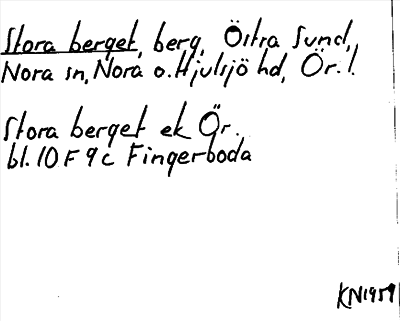 Stora berget, berg, Östra Sund,
Nora sn, Nora o. Hjulsjö hd, Ör. l.
Stora berget ek Ör.
bl. 10 F 9 c Fingerboda
KN1959